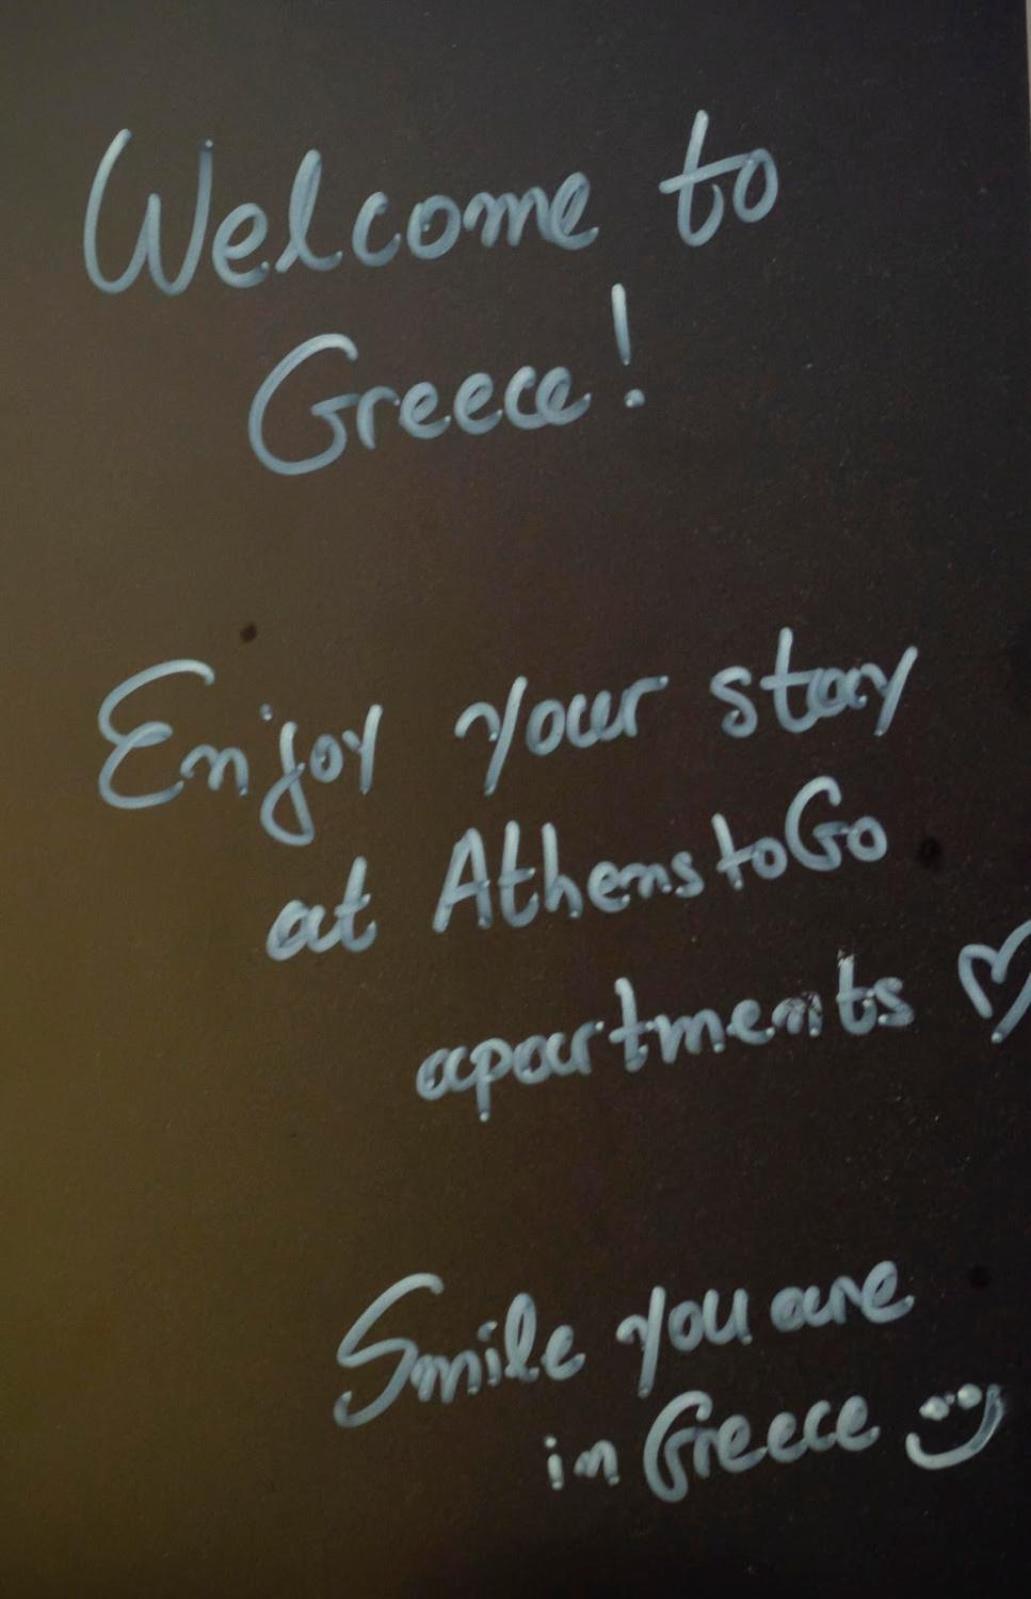 Welcome to
Greece!
Enjoy your stay
at AthenstoGo
apartments ♡
Smile you are
in Greece ☺